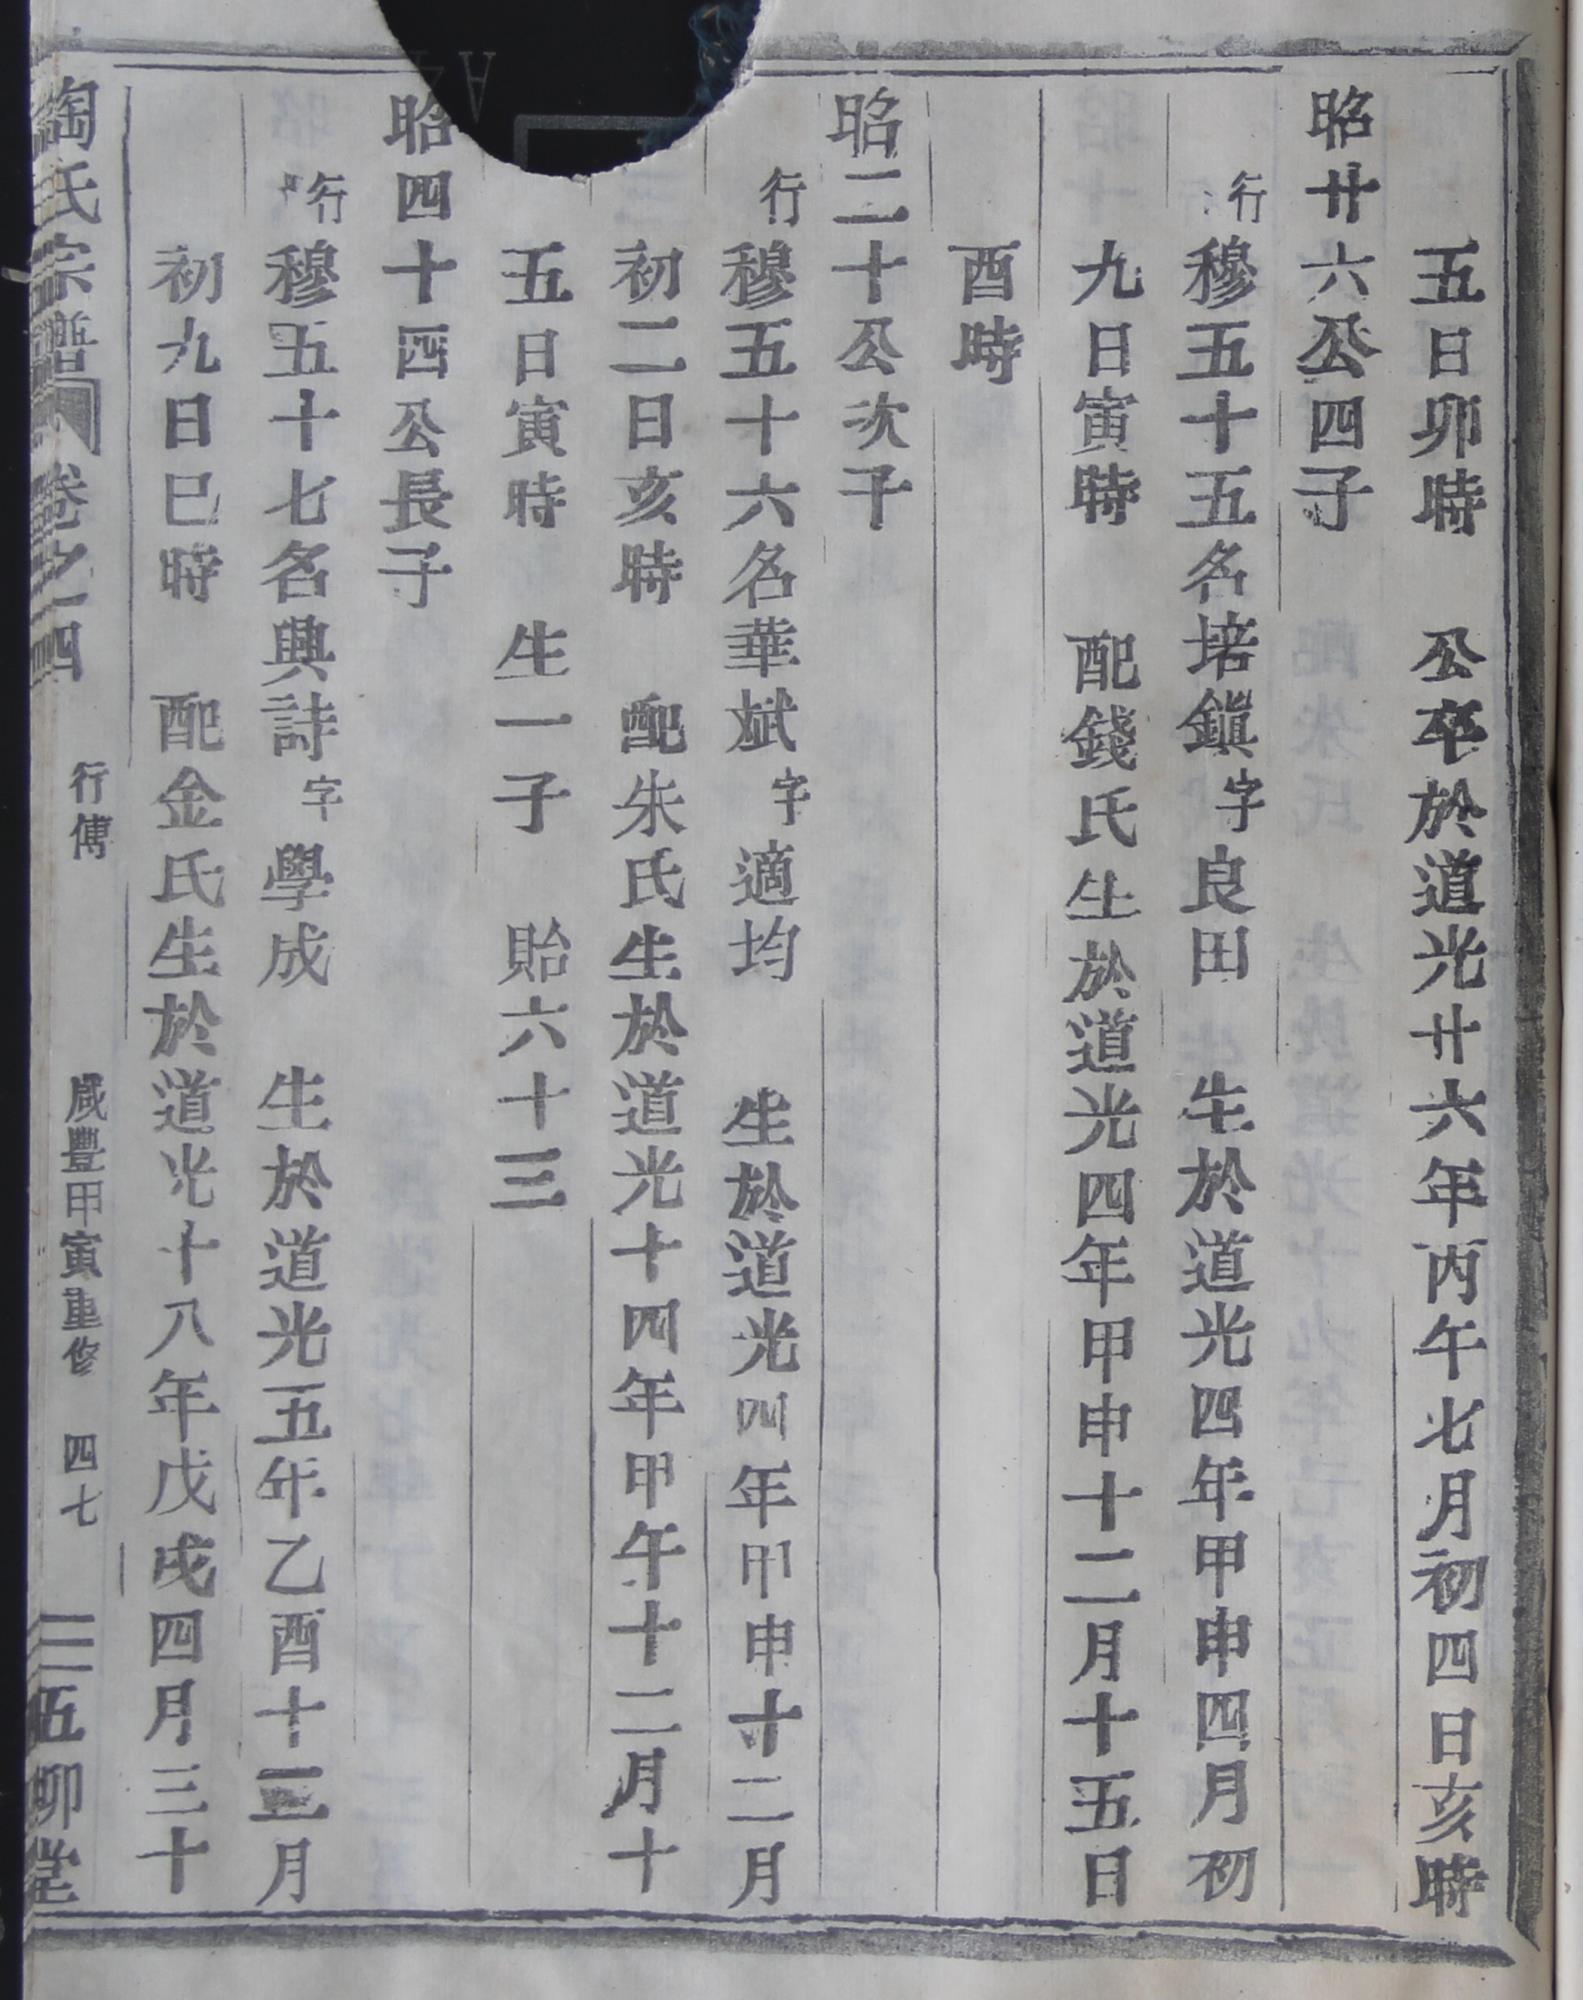 五日卯時　公卒於道光廿六年丙午七月初四日亥時
昭廿六公四子
行穆五十五名培鎭字良田　生於道光四年甲申四月初
九日寅時　配錢氏生於道光四年甲申十二月十五日
酉時
昭二十公次子
行穆五十六名華斌字適均　生於道光四年甲申十二月
初二日亥時　配朱氏生於道光十四年甲午十二月十
五日寅時　生一子　貽六十三
昭四十四公長子
行穆五十七名興詩字學成　生於道光五年乙酉十二月
初九日巳時　配金氏生於道光十八年戊戌四月三十
陶氏宗譜　卷之四　行傳　咸豐甲寅重修　四七　五柳堂